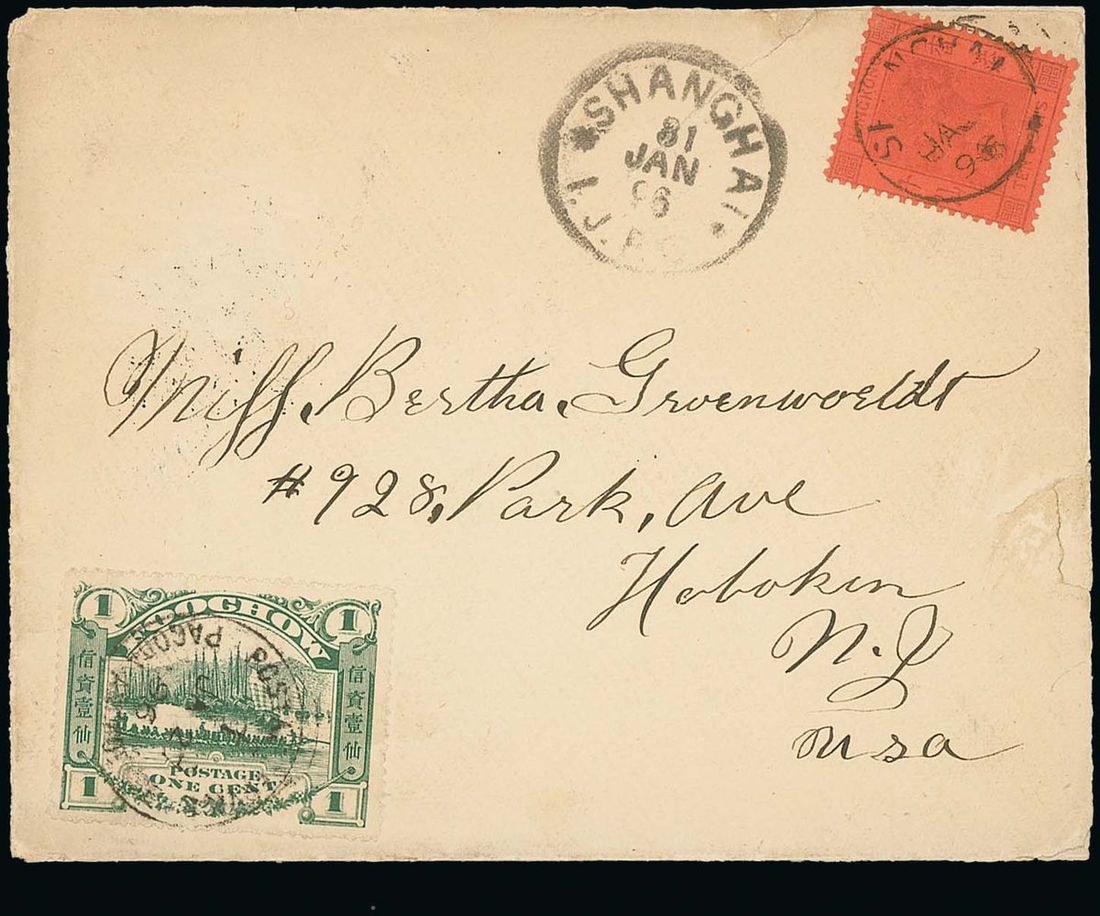 SHANGHAI
31
JAN
06
I.J.P.O.
JA
96
TEN
Miss. Bertha. Groenwoeldt
#928, Park, Ave
Hoboken
N.J
usa
1
FOOCHOW
1
信資壹仙
信資壹仙
POSTAGE
ONE CENT
1
1
PAGODA
POSTAL